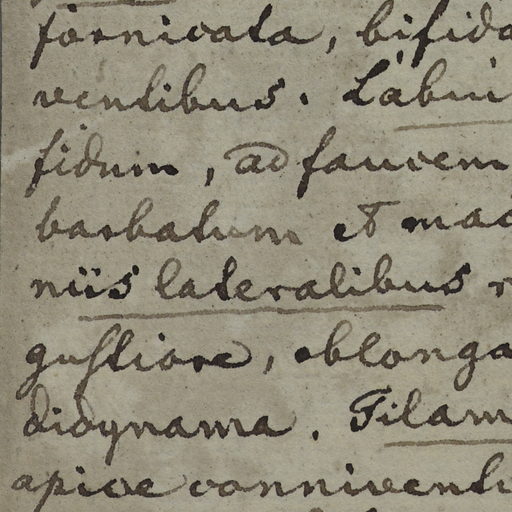 fornicata, bifida
ventibus. Labii
fidum, ad faucem
barbatum et mac
niis lateralibus r
gustiore, oblonga
didynama. Filam
apice conniventi